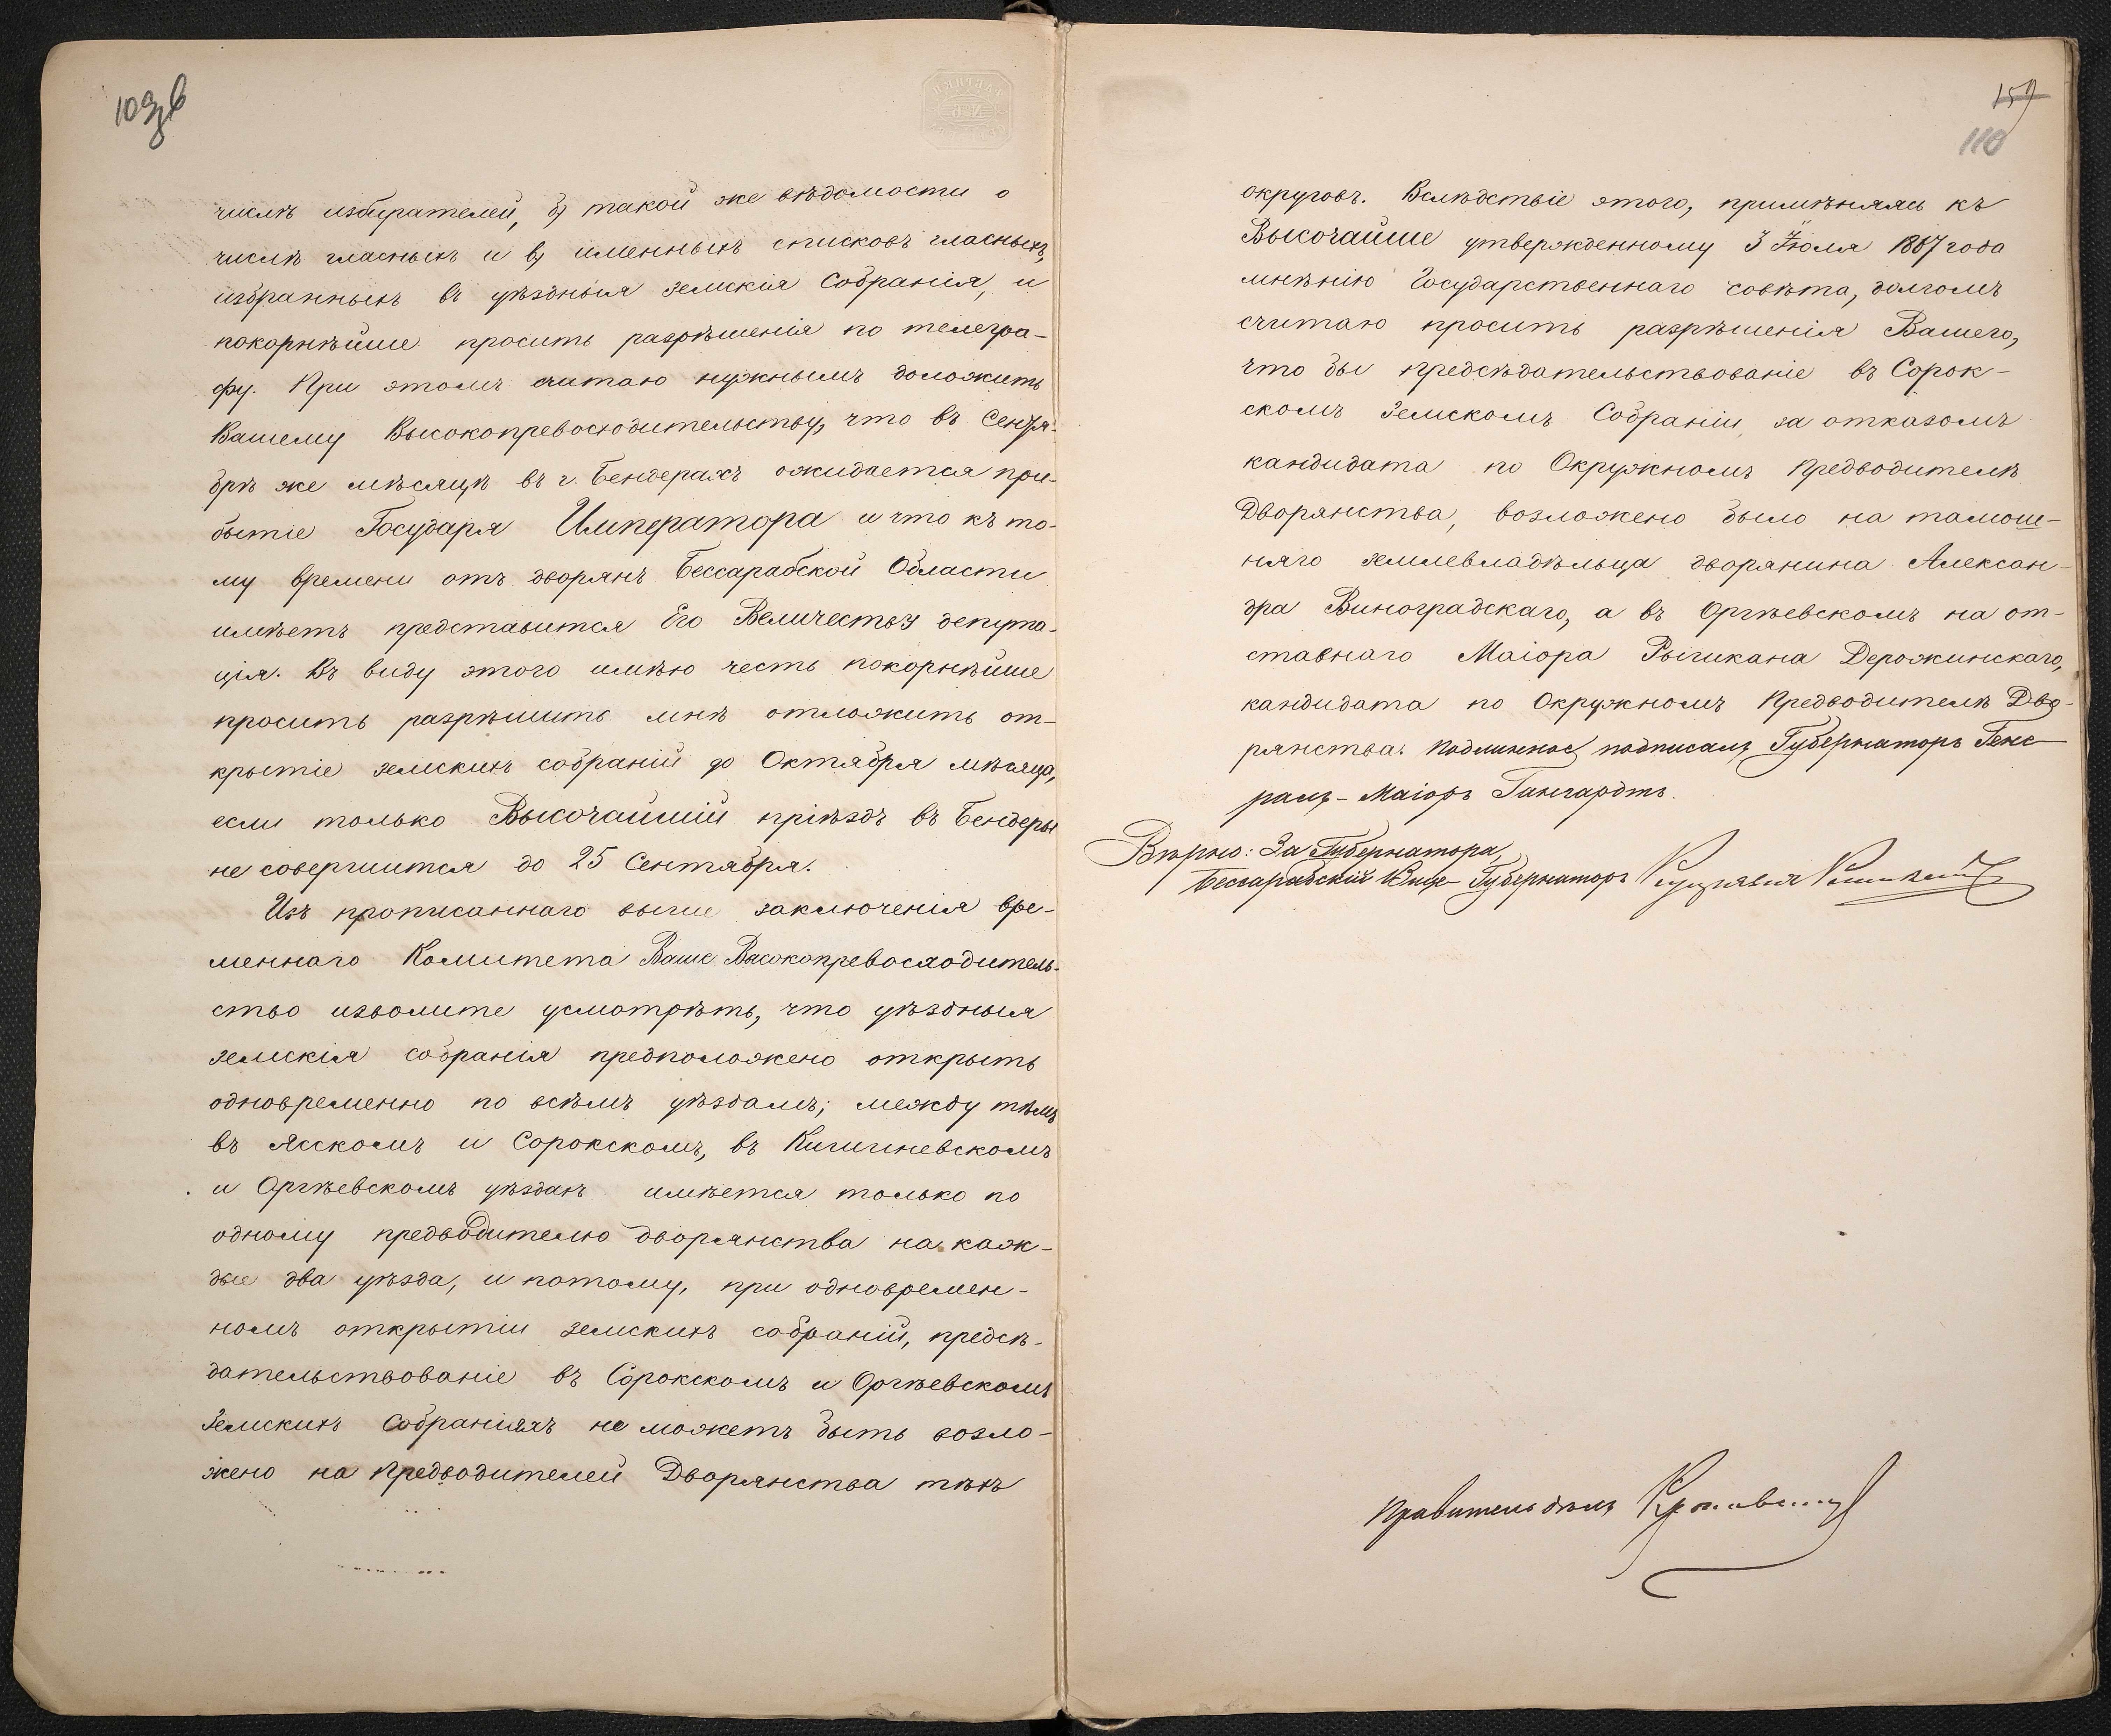 109 об
числѣ избирателей, б) такой же вѣдомости о
числѣ гласныхъ и в) именныхъ списковъ гласныхъ,
избранныхъ въ уѣздныя земскія Собранія, и
покорнѣйше просить разрѣшенія по телегра-
фу. При этомъ считаю нужнымъ доложить
Вашему Высокопревосходительству, что въ Сентя-
брѣ же мѣсяцѣ въ г. Бендерахъ ожидается при-
бытіе Государя Императора и что къ то-
му времени отъ дворянъ Бессарабской Области
имѣетъ представится Его Величеству депута-
ція. Въ виду этого имѣю честь покорнѣйше
просить разрѣшить мнѣ отложить от-
крытіе земскихъ собраній до Октября мѣсяца,
если только Высочайшій пріѣздъ въ Бендеры
не совершится до 25 Сентября.
Изъ прописаннаго выше заключенія вре-
меннаго Комитета Ваше Высокопревосходитель-
ство изволите усмотрѣть, что уѣздныя
земскія собранія предположено открыть
одновременно по всѣмъ уѣздамъ; между тѣмъ
въ Ясскомъ и Сорокскомъ, въ Кишиневскомъ
и Оргѣевскомъ уѣздахъ имѣется только по
одному предводителю дворянства на каж-
дые два уѣзда, и потому, при одновремен-
номъ открытіи земскихъ собраній, предсѣ-
дательствованіе въ Сорокскомъ и Оргѣевскомъ
Земскихъ Собраніяхъ не можетъ быть возло-
жено на Предводителей Дворянства тѣхъ
159
110
округовъ. Вслѣдствіе этого, примѣняясь къ
Высочайше утвержденному 3 Іюля 1867 года
мнѣнію Государственнаго совѣта, долгомъ
считаю просить разрѣшенія Вашего,
что бы предсѣдательствованіе въ Сорок-
скомъ Земскомъ Собраніи, за отказомъ
кандидата по Окружномъ Предводителѣ
Дворянства, возложено было на тамош-
няго землевладѣльца дворянина Алексан-
дра Виноградскаго, а въ Оргѣевскомъ на от-
ставнаго Маіора Рышкана Дерожинскаго,
кандидата по Окружномъ Предводителѣ Дво-
рянства. Подлинное подписалъ Губернаторъ Гене-
ралъ-Маіоръ Гангардтъ.
Вѣрно: За Губернатора,
Бессарабскій Вице-Губернаторъ
Правитель дѣлъ